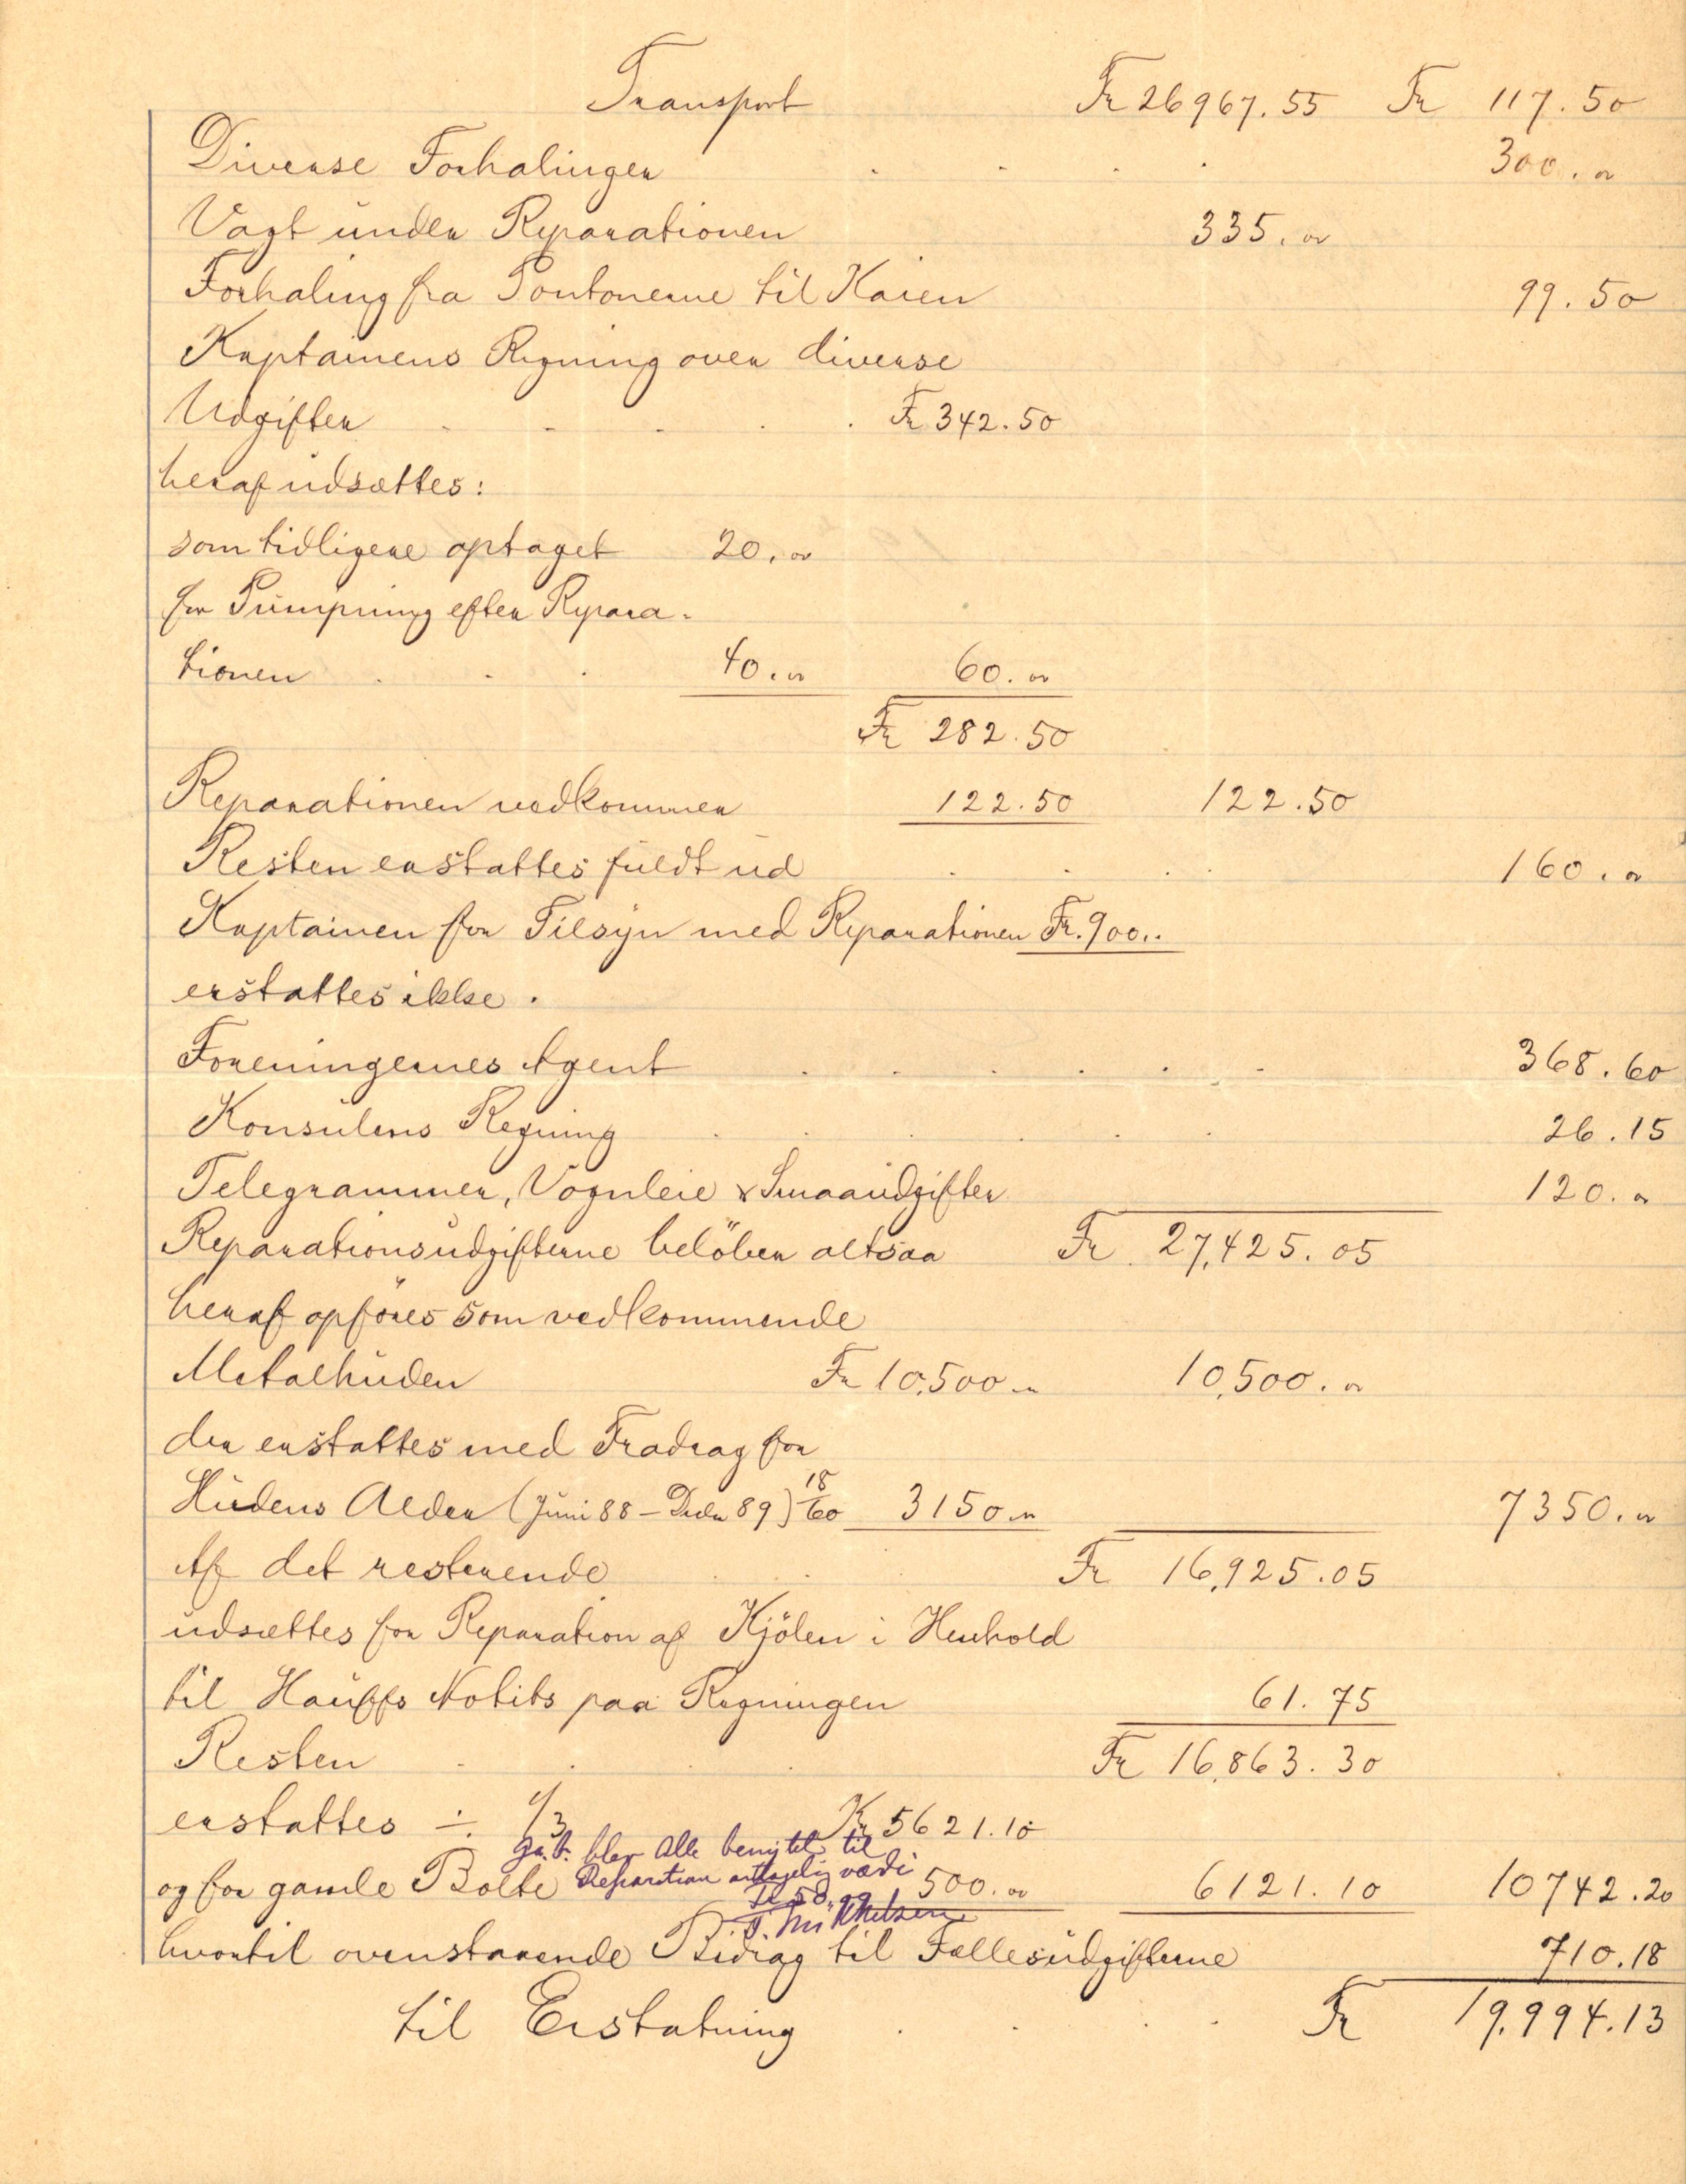 Transport Fr 26967.55 Fr 117.50
Diverse Forhalinger 300.00
Vagt under Reparationen 335.00
Forhaling fra Pontonerne til Kaien 99.50
Kaptainens Regning over diverse
Udgifter Fr 342.50
heraf udsættes:
som tidligere optaget 20.00
for Pumpning efter Repara-
tionen 40.00 60.00
Fr 282.50
Reparationen vedkommer 122.50 122.50
Resten erstattes fuldt ud 160.00
Kaptainen for Tilsyn med Reparationen Fr. 900..
erstattes ikke.
Foreningernes Agent 368.60
Konsulens Regning 26.15
Telegrammer, Vognleie & Smaaudgifter 120.00
Reparationsudgifterne belöber altsaa Fr 27,425.05
heraf opföres som vedkommende
Metalhuden Fr 10,500.00 10,500.00
der erstattes med Fradrag for
Hudens Alder (Juni 88 – Decbr 89) 18/60 3150.00 7350.00
Af det resterende Fr 16,925.05
udsættes for Reparation af Kjölen i Henhold
til Hauffs Notits paa Regningen 61.75
Resten Fr 16,863.30
erstattes ÷ 1/3 Kr 5621.10
blev Alle benyttet til
Reparation antagelig værdi
og for gamle Bolte 500.00 6121.10 10742.20
Fr 50
J. Mikkelsen
hvortil ovenstaaende Bidrag til Fællesudgifterne 710.18
til Erstatning Fr 19,994.13